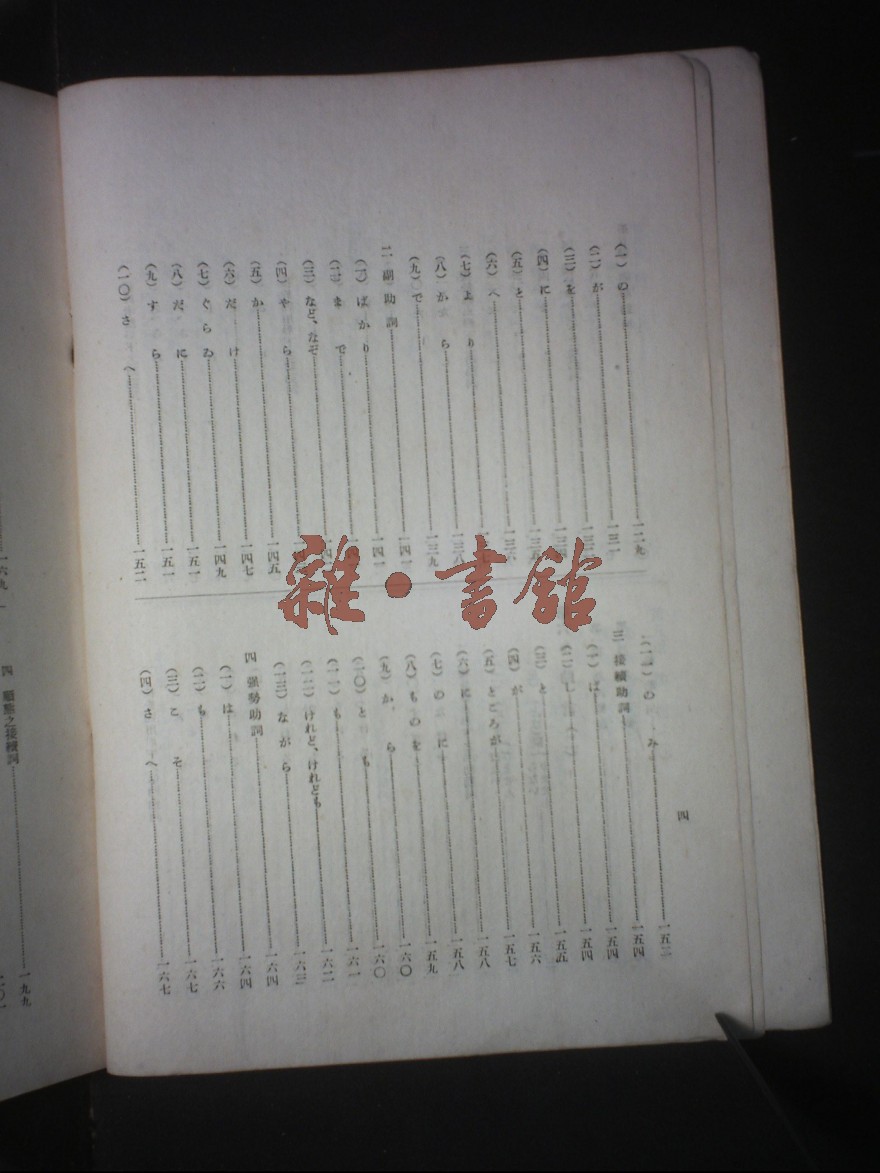 四
(一)の……一二九
(二)が……一三一
(三)を……
(四)に……
(五)と……
(六)へ……一三六
(七)より……
(八)から……一三八
(九)で……一三九
二 副助詞……一四一
(一)ばかり……一四一
(二)まで……
(三)など、なぞ……
(四)やら……
(五)か……一四五
(六)だけ……一四七
(七)ぐらゐ……一四九
(八)だに……一五一
(九)すら……一五一
(一〇)さへ……一五二
(一一)のみ……一五三
三 接續助詞……一五四
(一)ば……一五四
(二)し……一五五
(三)と……一五六
(四)が……一五七
(五)ところが……一五八
(六)に……一五八
(七)のに……一五九
(八)ものを……一六〇
(九)から……一六〇
(一〇)とも……一六一
(一一)も……一六二
(一二)けれど、けれども……
(一三)ながら……一六三
四 强勢助詞……一六四
(一)は……一六六
(二)も……一六七
(三)こそ……一六七
(四)さへ……一六七
一六九
四 順態之接續詞……一九九
雜·書館